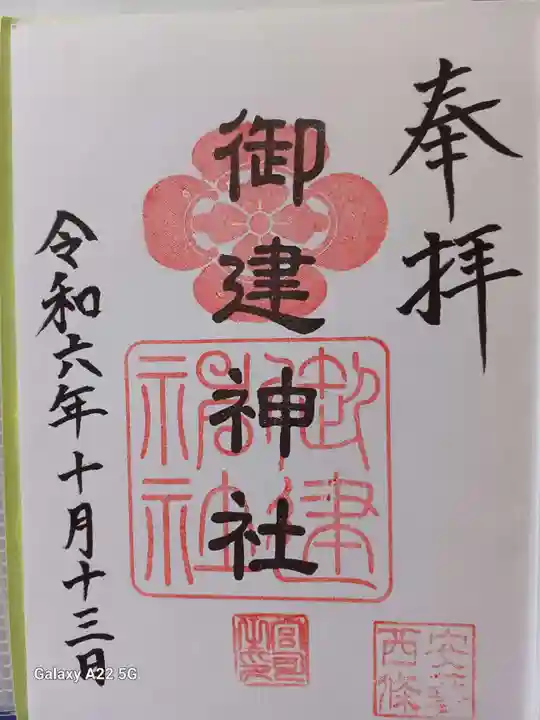 奉拝
御建神社
令和六年十月十三日
御建神社
宮司之印
安藝西條
Galaxy A22 5G